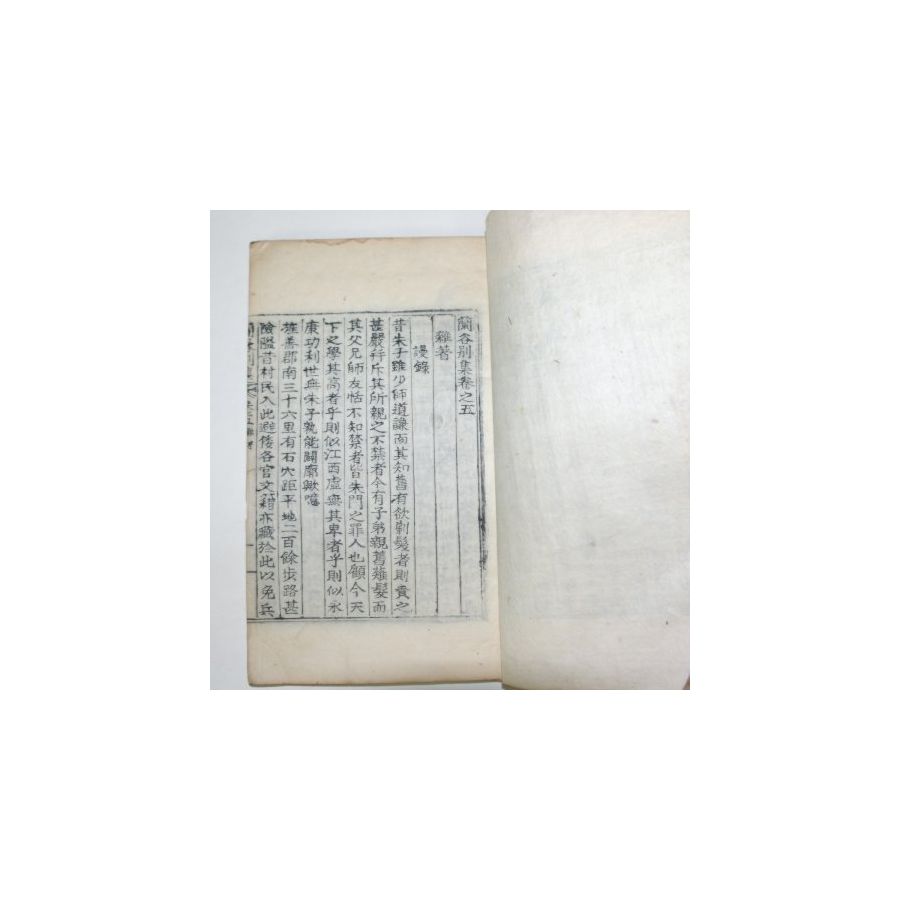 蘭谷別集卷之五
雜著
謾錄
昔朱子雖少師道謙而其知舊有欲剃髮者則責之
甚嚴拜斥其所親之不禁者今有子弟親舊薙髮而
其父兄師友恬不知禁者皆朱門之罪人也顧今天
下之學其高者乎則似江西虛無其卑者乎則似永
康功利世無朱子孰能闢廓歟噫
旌善郡南三十六里有石穴距平地二百餘步路甚
險盬昔村民入此避倭各官文籍亦藏於此以免兵